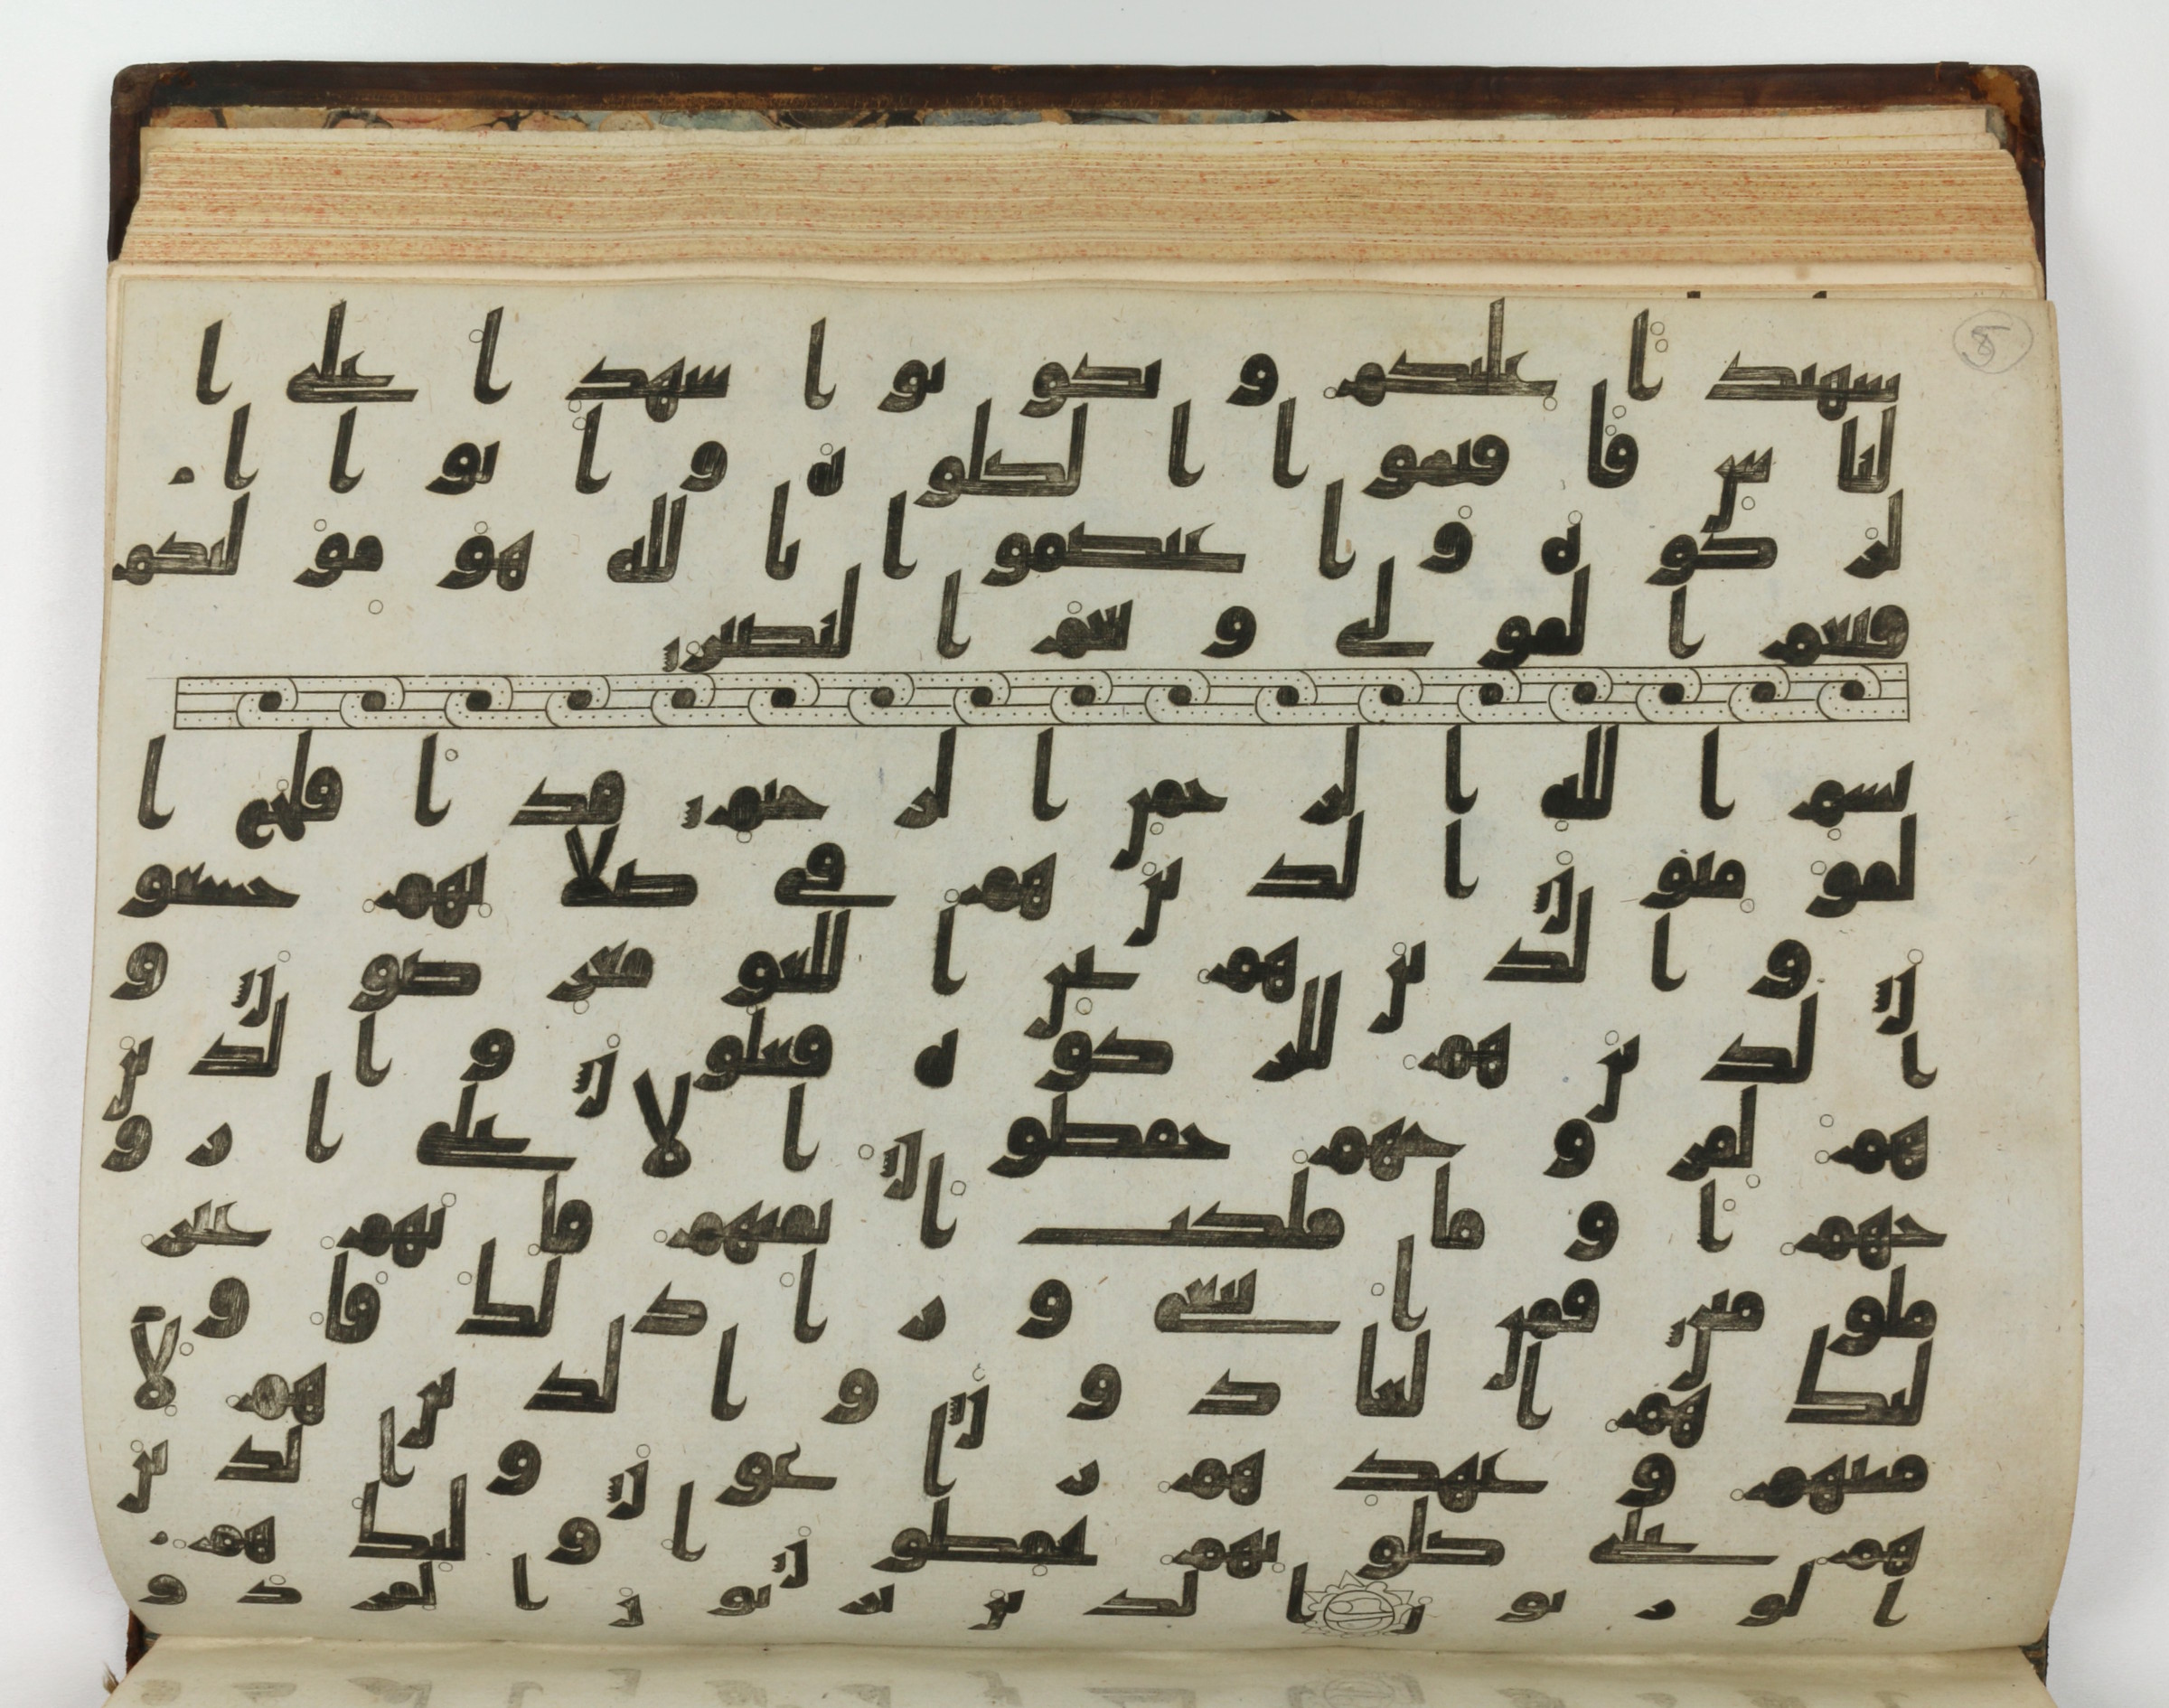 شهيدا عليكم وتكونوا شهدا على ا
لناس فاقيموا الصلوة واتوا ا
لزكوة واعتصموا بالله هو موليكم
فنعم المولى ونعم النصير
بسم الله الرحمن الرحيم قد افلح ا
لمومنون الذين هم في صلاتهم خشعو
ن والذين هم عن اللغو معرضون و
الذين هم للزكوة فعلون والذين
هم لفروجهم حفظون الا على ازو
جهم او ما ملكت ايمنهم فانهم غير
ملومين فمن ابتغى ورا ذلك فاو
ليك هم العادون والذين هم لا
منتهم وعهدهم راعون والذين
هم على صلوتهم يحفظون اوليك هم
الورثون الذين يرثون الفردو